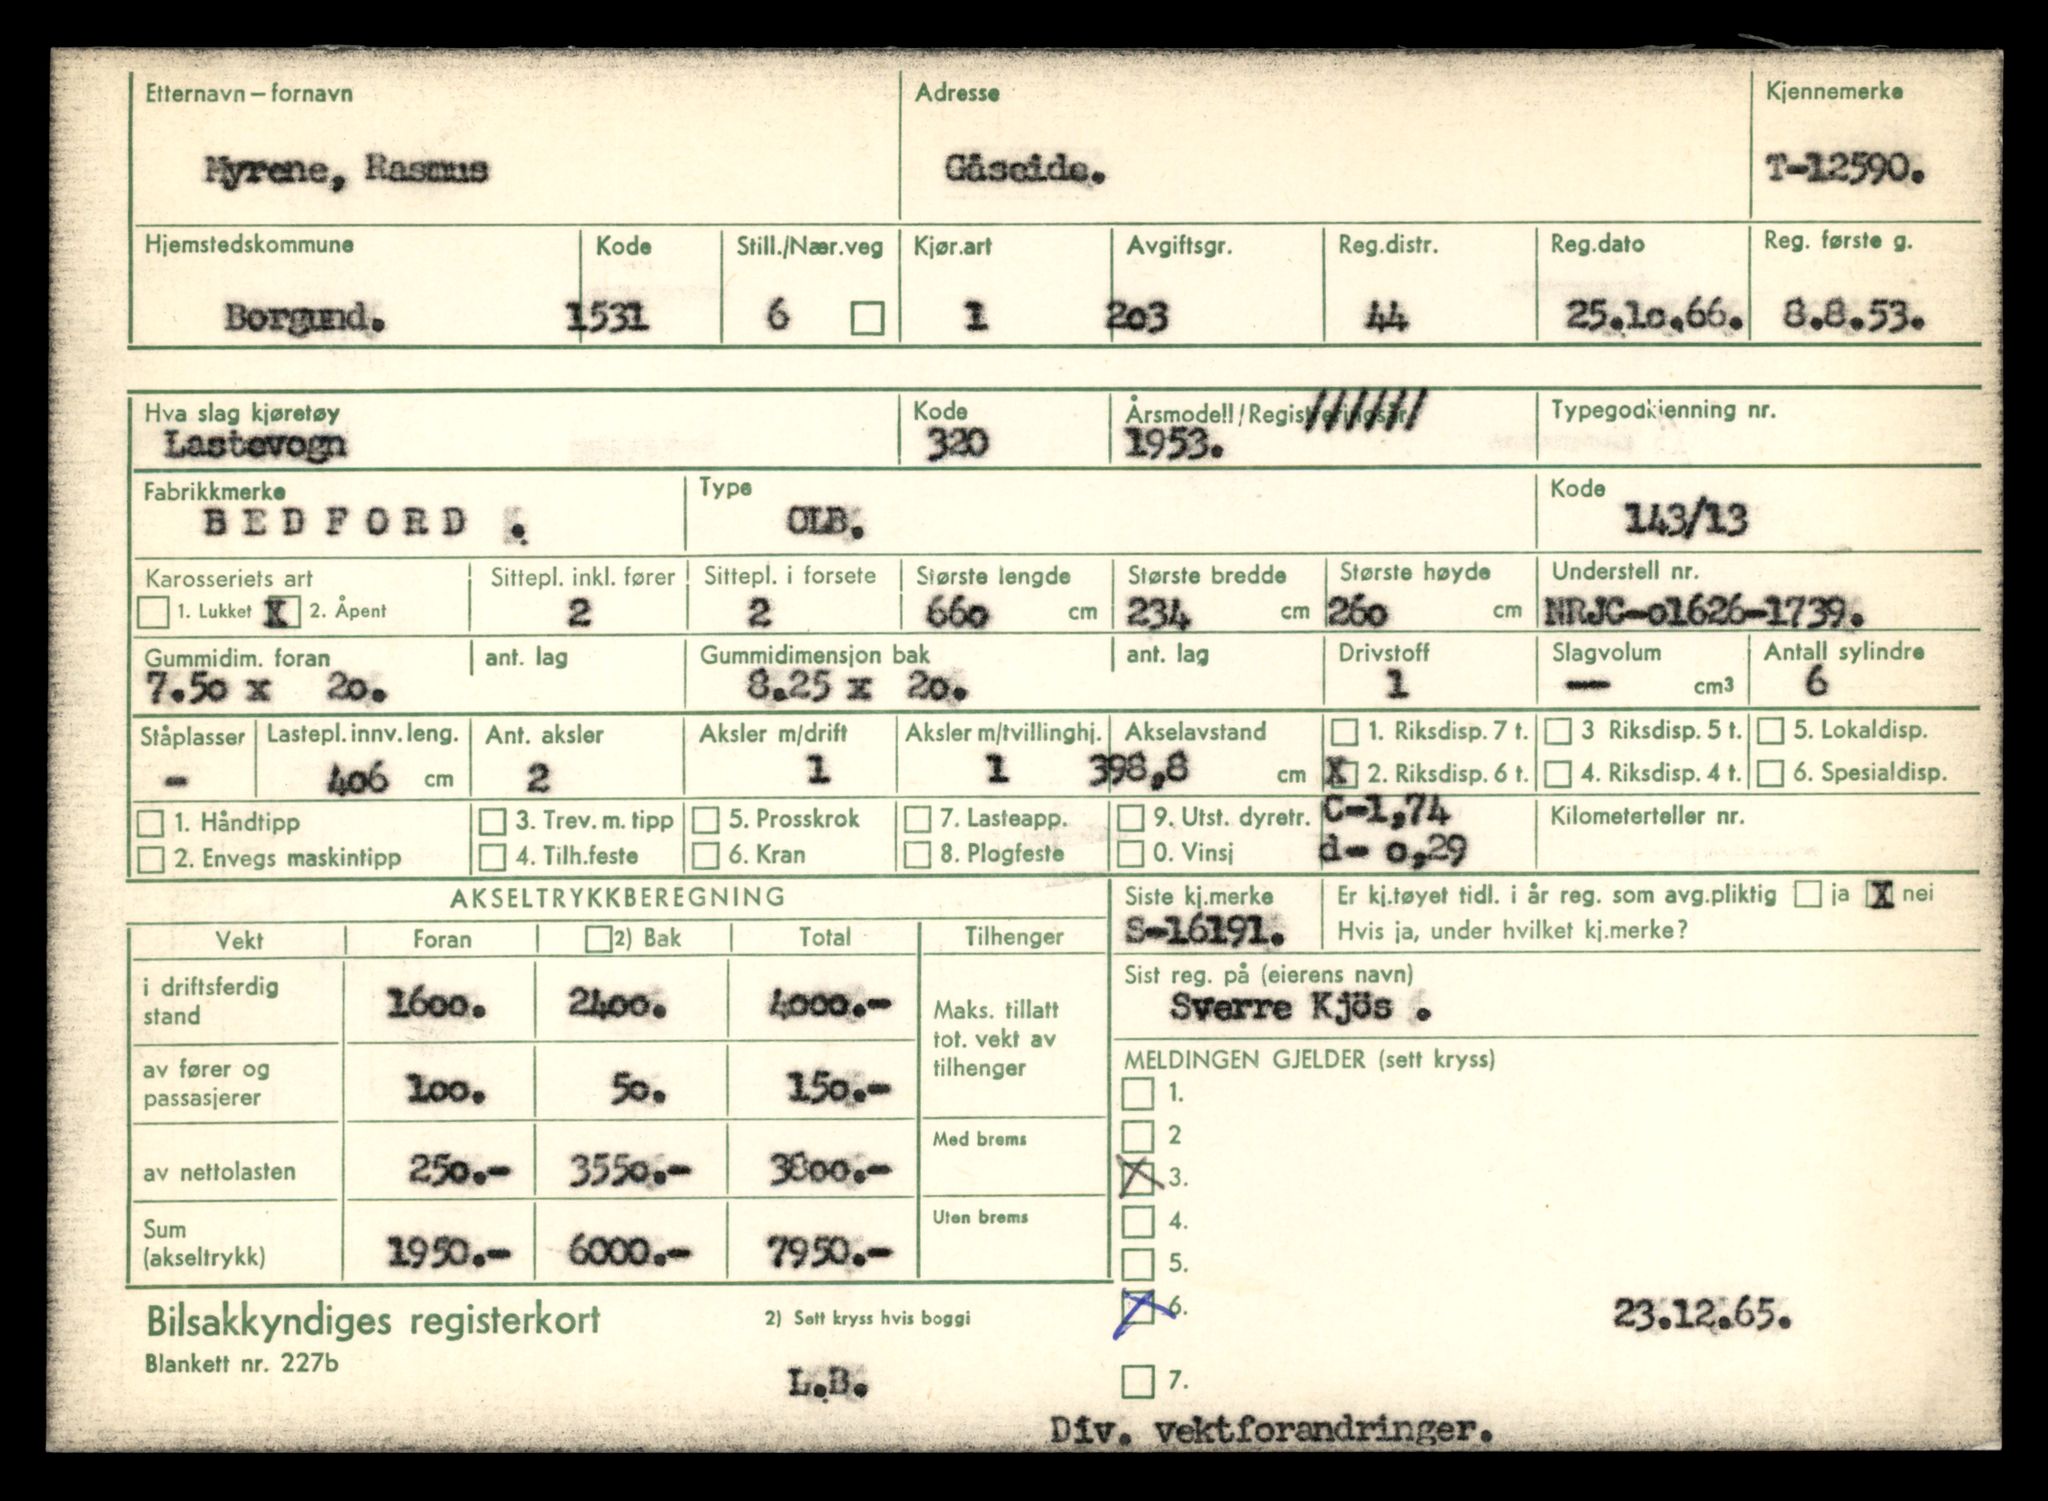 Etternavn – fornavn Adresse Kjennemerke
Myrene, Rasmus Gåseide. T-12590.
Hjemstedskommune Kode Still./Nær.veg Kjør.art Avgiftsgr. Reg.distr. Reg.dato Reg. første g.
Borgund. 1531 6 1 2o3 44 25.1o.66. 8.8.53.
Hva slag kjøretøy Kode Årsmodell/Registreringsår Typegodkjenning nr.
Lastevogn 320 1953.
Fabrikkmerke Type Kode
B E D F O R D . OLB. 143/13
Karosseriets art Sittepl. inkl. fører Sittepl. i forsete Største lengde Største bredde Største høyde Understell nr.
1. Lukket X 2. Åpent 2 2 66o cm 234 cm 26o cm NRJC-o1626-1739.
Gummidim. foran ant. lag Gummidimensjon bak ant. lag Drivstoff Slagvolum Antall sylindre
7.5o x 2o. 8.25 x 2o. 1 — cm3 6
Ståplasser Lastepl. innv. leng. Ant. aksler Aksler m/drift Aksler m/tvillinghj. Akselavstand 1. Riksdisp. 7 t. 3 Riksdisp. 5 t. 5. Lokaldisp.
- 4o6 cm 2 1 1 398,8 cm X 2. Riksdisp. 6 t. 4. Riksdisp. 4 t. 6. Spesialdisp.
1. Håndtipp 3. Trev. m. tipp 5. Prosskrok 7. Lasteapp. 9. Utst. dyretr. C-1,74 Kilometerteller nr.
2. Envegs maskintipp 4. Tilh.feste 6. Kran 8. Plogfeste 0. Vinsj d- o,29
AKSELTRYKKBEREGNING Siste kj.merke Er kj.tøyet tidl. i år reg. som avg.pliktig ja X nei
S-16191. Hvis ja, under hvilket kj.merke?
Vekt Foran 2) Bak Total Tilhenger
Sist reg. på (eierens navn)
Sverre Kjös .
i driftsferdig stand 16oo. 24oo. 4ooo.-
Maks. tillatt
tot. vekt av
tilhenger
av fører og
passasjerer 1oo. 5o. 15o.-
Med brems
av nettolasten 25o.- 355o.- 38oo.-
Uten brems
Sum
(akseltrykk) 1950.- 6000.- 7950.-
MELDINGEN GJELDER (sett kryss)
1.
2
X 3.
4.
5.
X 6. 23.12.65.
7.
Bilsakkyndiges registerkort 2) Sett kryss hvis boggi
Blankett nr. 227b
L.B.
Div. vektforandringer.